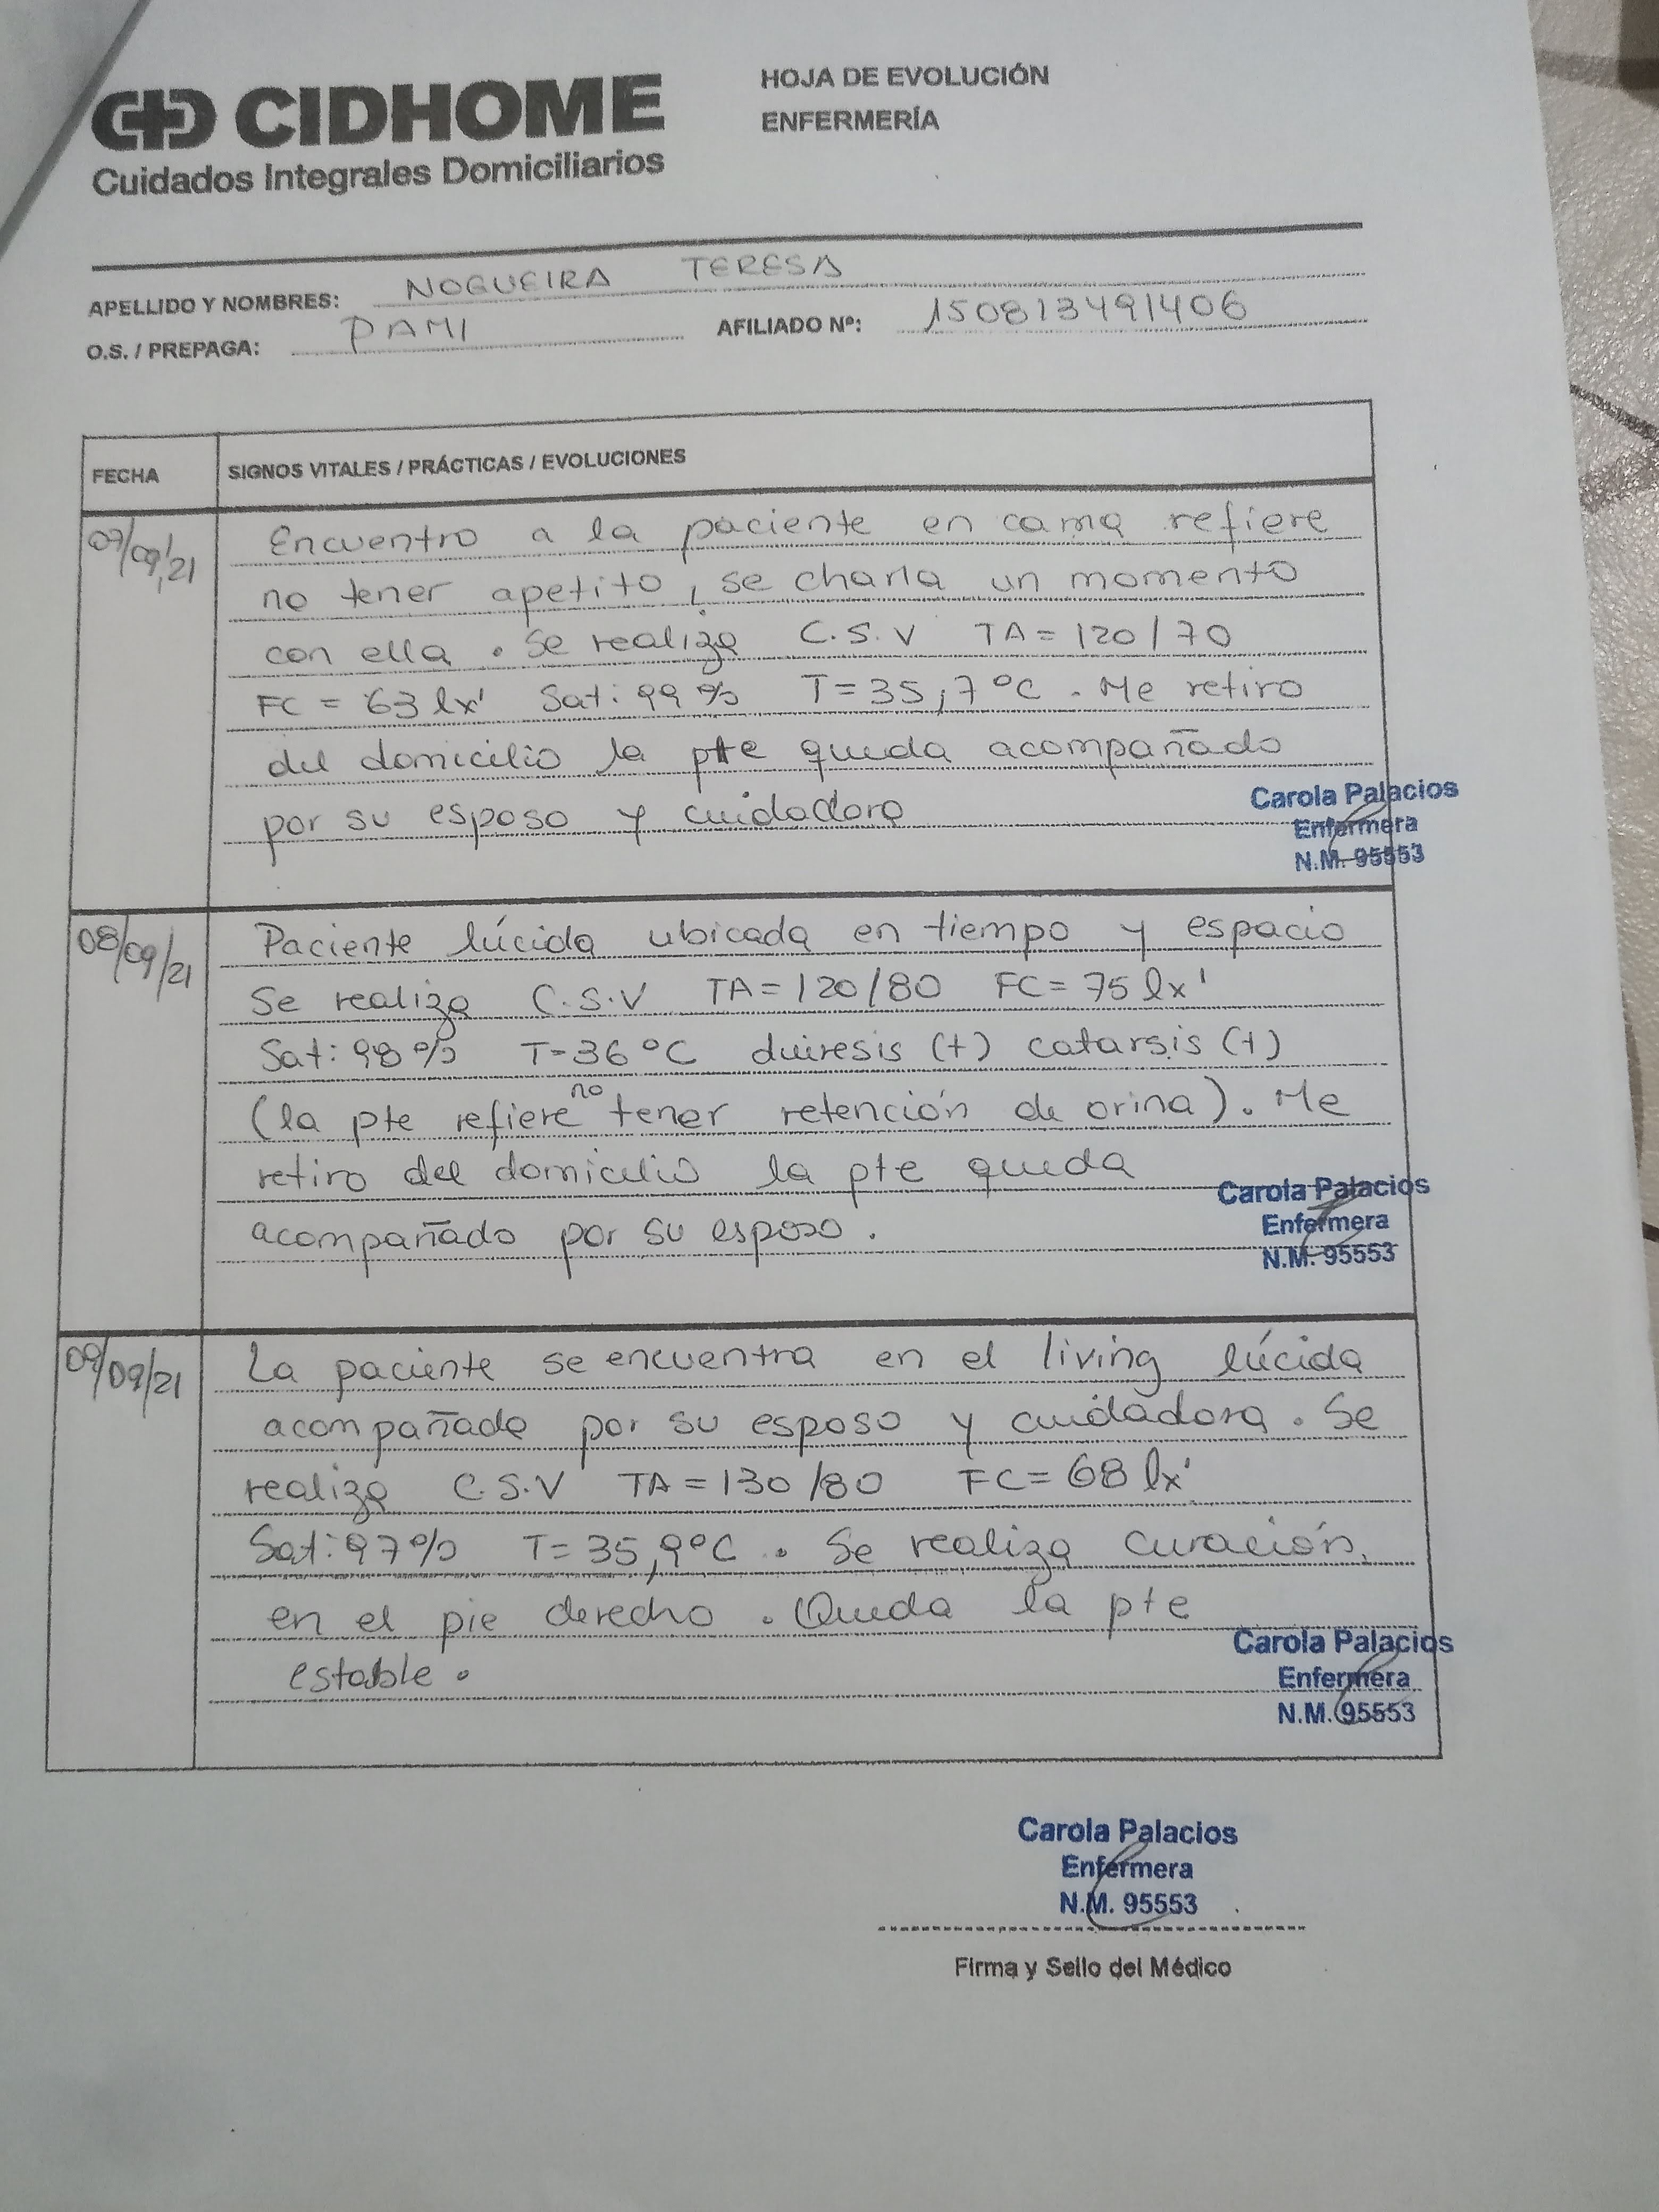 CIDHOME
Cuidados Integrales Domiciliarios
HOJA DE EVOLUCIÓN
ENFERMERÍA
APELLIDO Y NOMBRES: NOGUEIRA TERESA
O.S. / PREPAGA: PAMI AFILIADO Nº: 150813491406
FECHA SIGNOS VITALES / PRÁCTICAS / EVOLUCIONES
07/09/21 Encuentro a la paciente en cama refiere
no tener apetito, se charla un momento
con ella. Se realiza C.S.V TA=120/70
FC = 63 lx' Sat: 99% T=35,7ºC. Me retiro
del domicilio la pte queda acompañado
por su esposo y cuidadora
Carola Palacios
Enfermera
N.M. 95553
08/09/21 Paciente lúcida ubicada en tiempo y espacio
Se realiza C.S.V TA=120/80 FC=75 lx'
Sat: 98% T=36ºC duiresis (+) catarsis (+)
(la pte refiere no tener retención de orina). Me
retiro del domicilio la pte queda
acompañado por su esposo.
Carola Palacios
Enfermera
N.M. 95553
09/09/21 La paciente se encuentra en el living lúcida
acompañada por su esposo y cuidadora. Se
realiza C.S.V TA=130/80 FC=68 lx'
Sat: 97% T=35,9ºC. Se realiza curación
en el pie derecho. Queda la pte
estable.
Carola Palacios
Enfermera
N.M. 95553
Carola Palacios
Enfermera
N.M. 95553
Firma y Sello del Médico